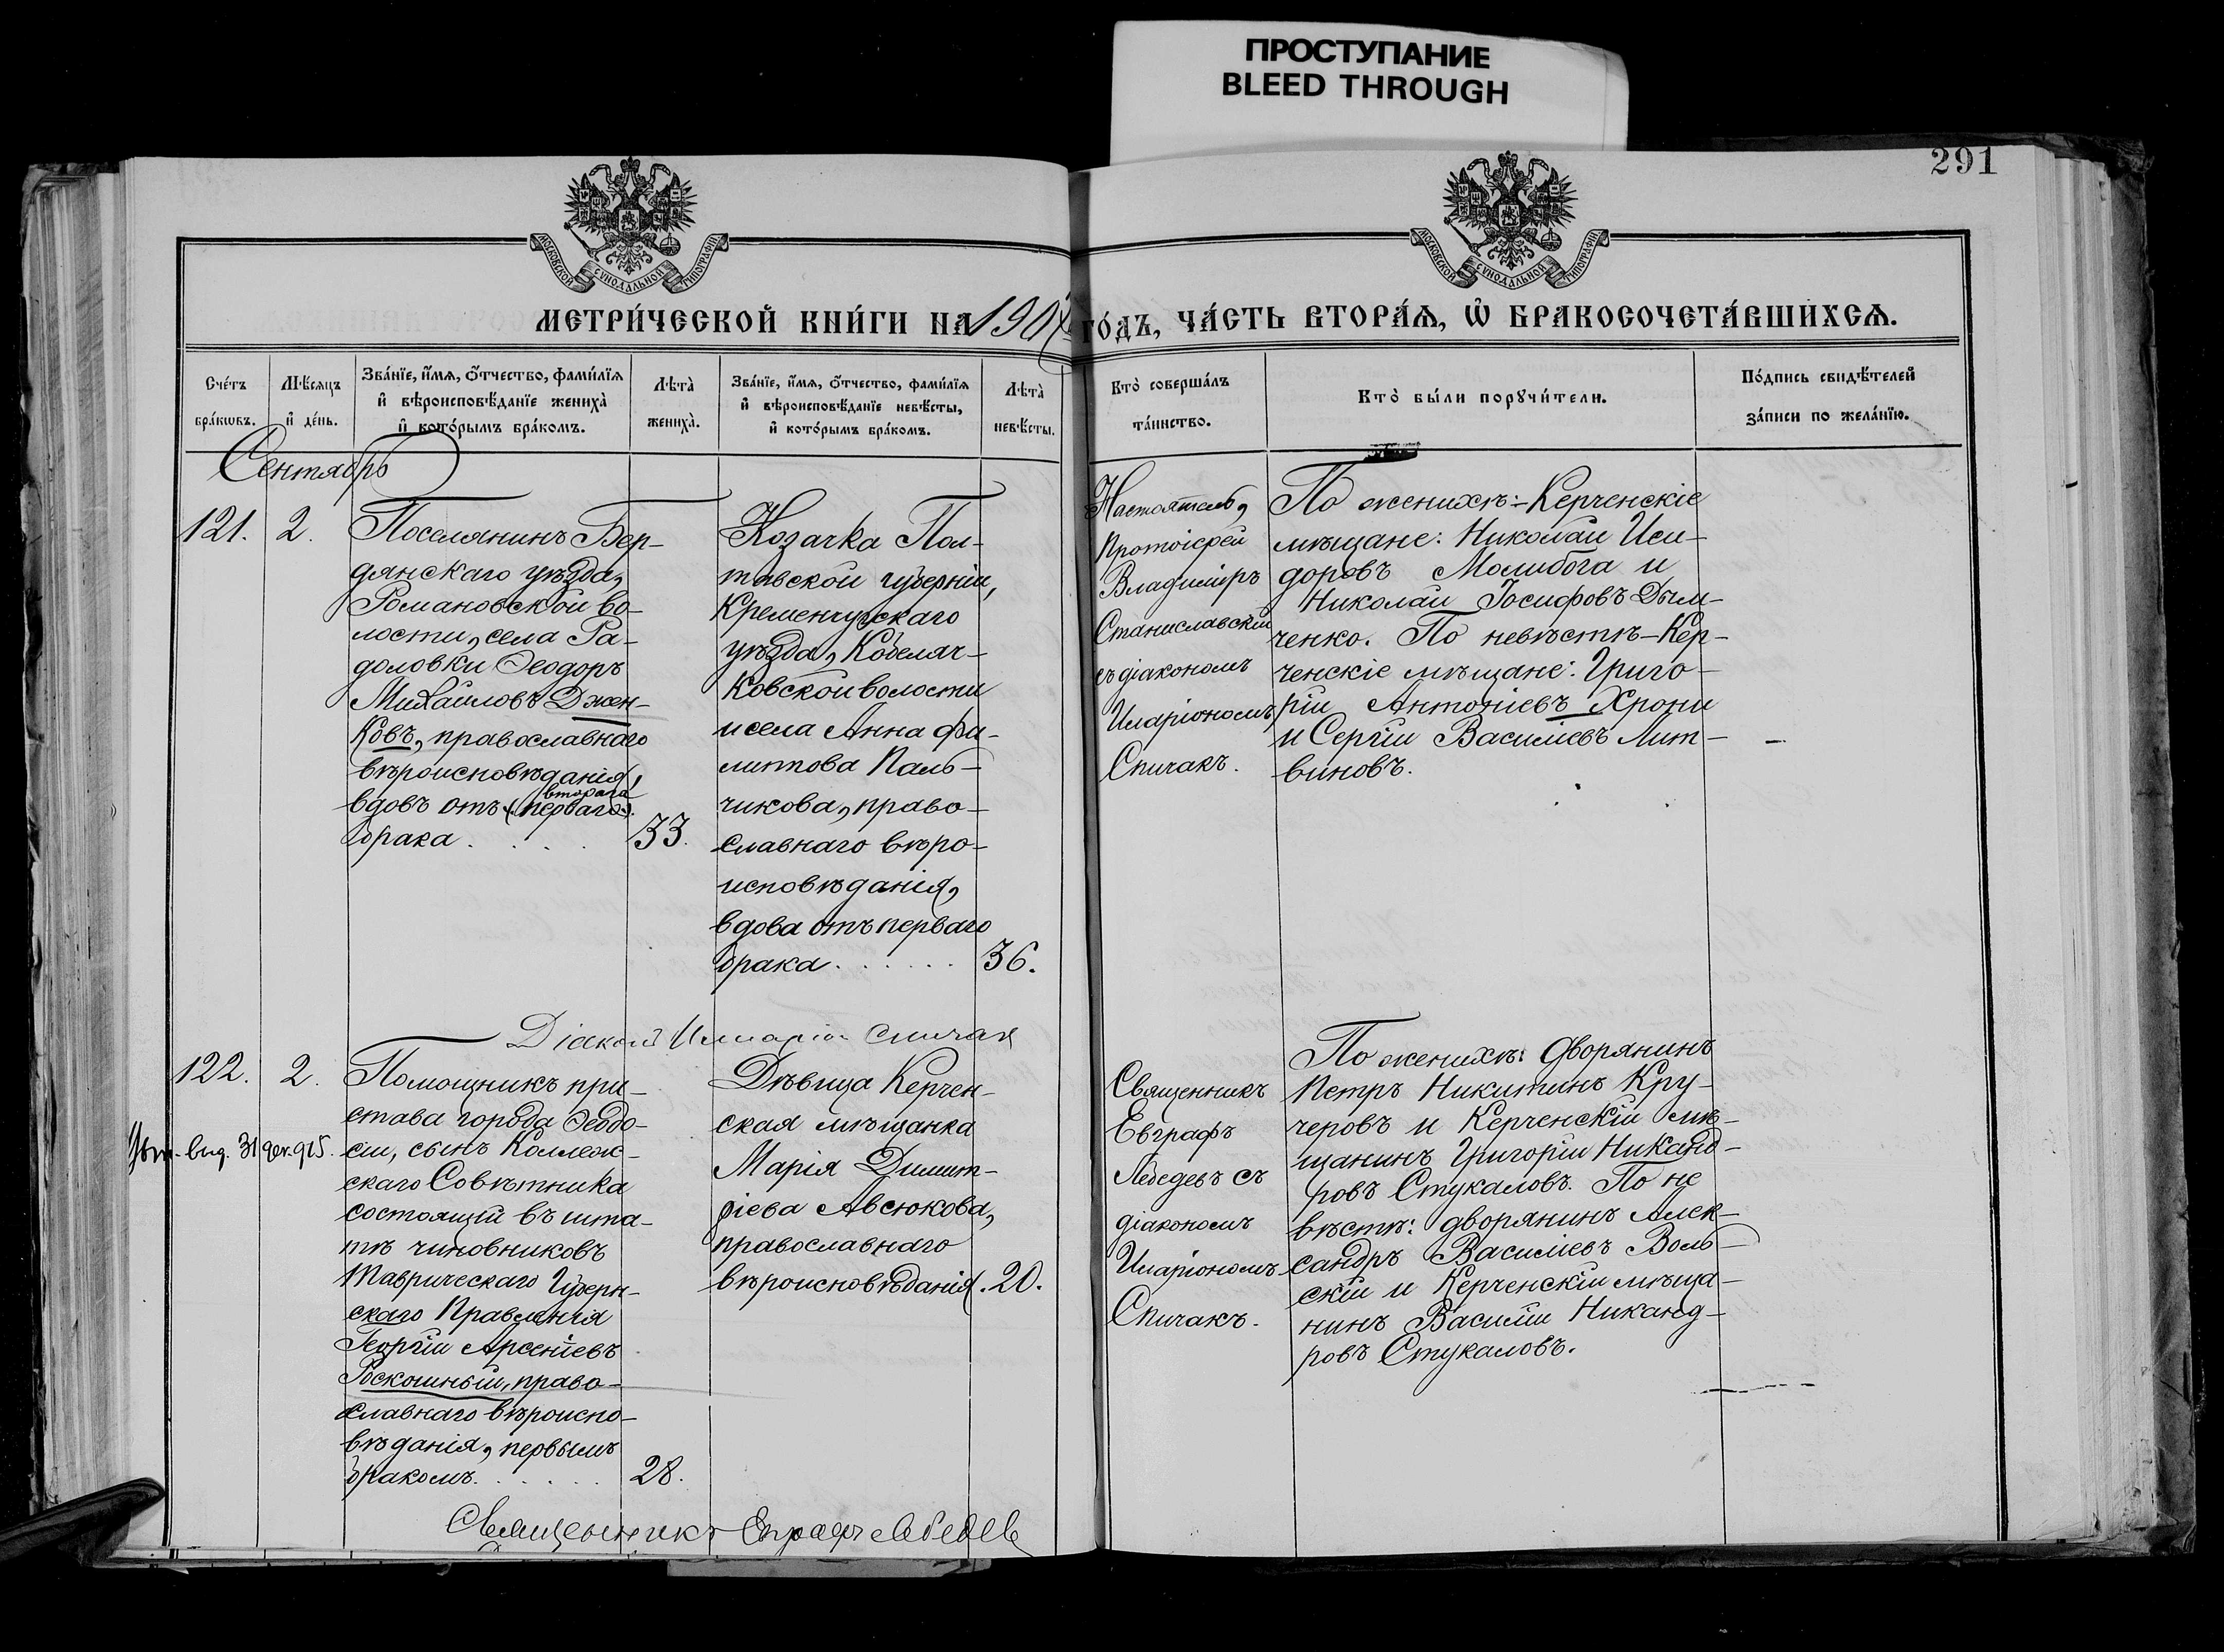 ПРОСТУПАНИЕ
BLEED THROUGH
291
МОСКОВСКОЙ СУНОДАЛЬНОЙ ТИПОГРАФІИ
МОСКОВСКОЙ СУНОДАЛЬНОЙ ТИПОГРАФІИ
МЕТРИ́ЧЕСКОЙ КНИ́ГИ НА 190 ГО́ДЪ, ЧА́СТЬ ВТОРА́Ѧ, Ѡ БРАКОСОЧЕТА́ВШИХСѦ.
Сче́тъ
бра́кѡвъ.
Мѣ́сѧцъ
и҆ де́нь.
Зва́нїе, и҆́мѧ, ѻ҆́тчество, фами́лїѧ
и҆ вѣроисповѣ́данїе жениха̀
и҆ кото́рымъ бра́комъ.
Лѣта̀
жениха̀.
Зва́нїе, и҆́мѧ, ѻ҆́тчество, фами́лїѧ
и҆ вѣроисповѣ́данїе невѣ́сты,
и҆ кото́рымъ бра́комъ.
Лѣта̀
невѣ́сты.
Кто̀ соверша́лъ
та́инство.
Кто̀ бы́ли порꙋчи́тели.
По́дпись свидѣ́телей
за́писи по жела́нїю.
Сентябрь
121.
2.
Поселянинъ Бер-
дянскаго уѣзда,
Романовской во-
лости, села Ра-
доловки Ѳеодоръ
Михайловъ Джен-
ковъ, православнаго
вѣроисповѣданія,
втораго
вдовъ отъ (перваго).
брака . . . . 33.
Козачка Пол-
тавской губерніи,
Кременчугскаго
уѣзда, Кобеляч-
ковской волости
и села Анна Фи-
липпова Паль-
чикова, право-
славнаго вѣро-
исповѣданія,
вдова отъ перваго
брака . . . . . . 36.
Настоятель,
Протоіерей
Владиміръ
Станиславскій
съ діакономъ
Иларіономъ
Спичакъ.
По женихѣ:- Керченскіе
мѣщане: Николай Иси-
доровъ Молибога и
Николай Іосифовъ Дым-
ченко. По невѣстѣ- Кер-
ченскіе мѣщане: Григо-
рій Антоніевъ Хрони
и Сергій Василіевъ Лит-
виновъ.
Діаконъ Иларіон Спичак
122.
2.
вид. 31 дек. 915.
Помощникъ при-
става города Ѳеодо-
сіи, сынъ Коллеж-
скаго Совѣтника
состоящій въ шта-
тѣ чиновниковъ
Таврическаго Губерн-
скаго Правленія
Георгій Арсеніевъ
Роскошный, право-
славнаго вѣроиспо-
вѣданія, первымъ
бракомъ. . . . . . 28.
Дѣвица Керчен-
ская мѣщанка
Марія Димит-
ріева Авсюкова,
православнаго
вѣроисповѣданія. 20.
Священникъ
Евграфъ
Лебедевъ съ
діакономъ
Иларіономъ
Спичакъ.
По женихѣ: дворянинъ
Петръ Никитинъ Кру-
черовъ и Керченскій мѣ-
щанинъ Григорій Никанд-
ровъ Стукаловъ. По не
вѣстѣ: дворянинъ Алек-
сандръ Василіевъ Воль-
скій и Керченскій мѣща-
нинъ Василій Никанд-
ровъ Стукаловъ.
Священникъ Евграфъ Лебедев